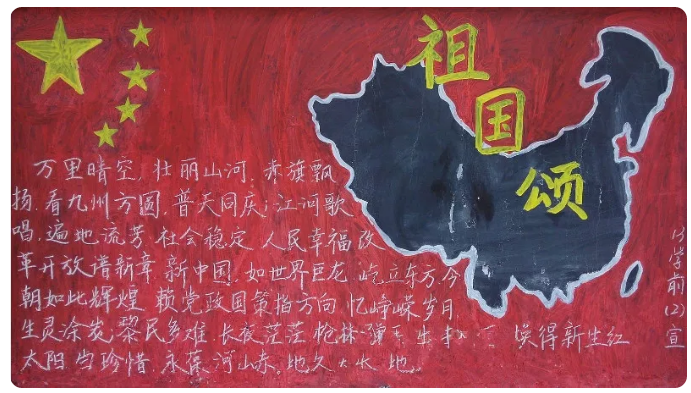 祖国颂
万里晴空,壮丽山河,赤旗飘
扬.看九州方圆,普天同庆;江河歌
唱.遍地流芳.社会稳定.人民幸福改
革开放谱新章.新中国.如世界巨龙.屹立东方.今
朝如此辉煌.赖党政国策指方向.忆峥嵘岁月.
生灵涂炭.黎民多难.长夜茫茫.枪林弹 生 误得新生红
太阳.当珍惜.永葆河山赤。地久 地
学前(2)宣